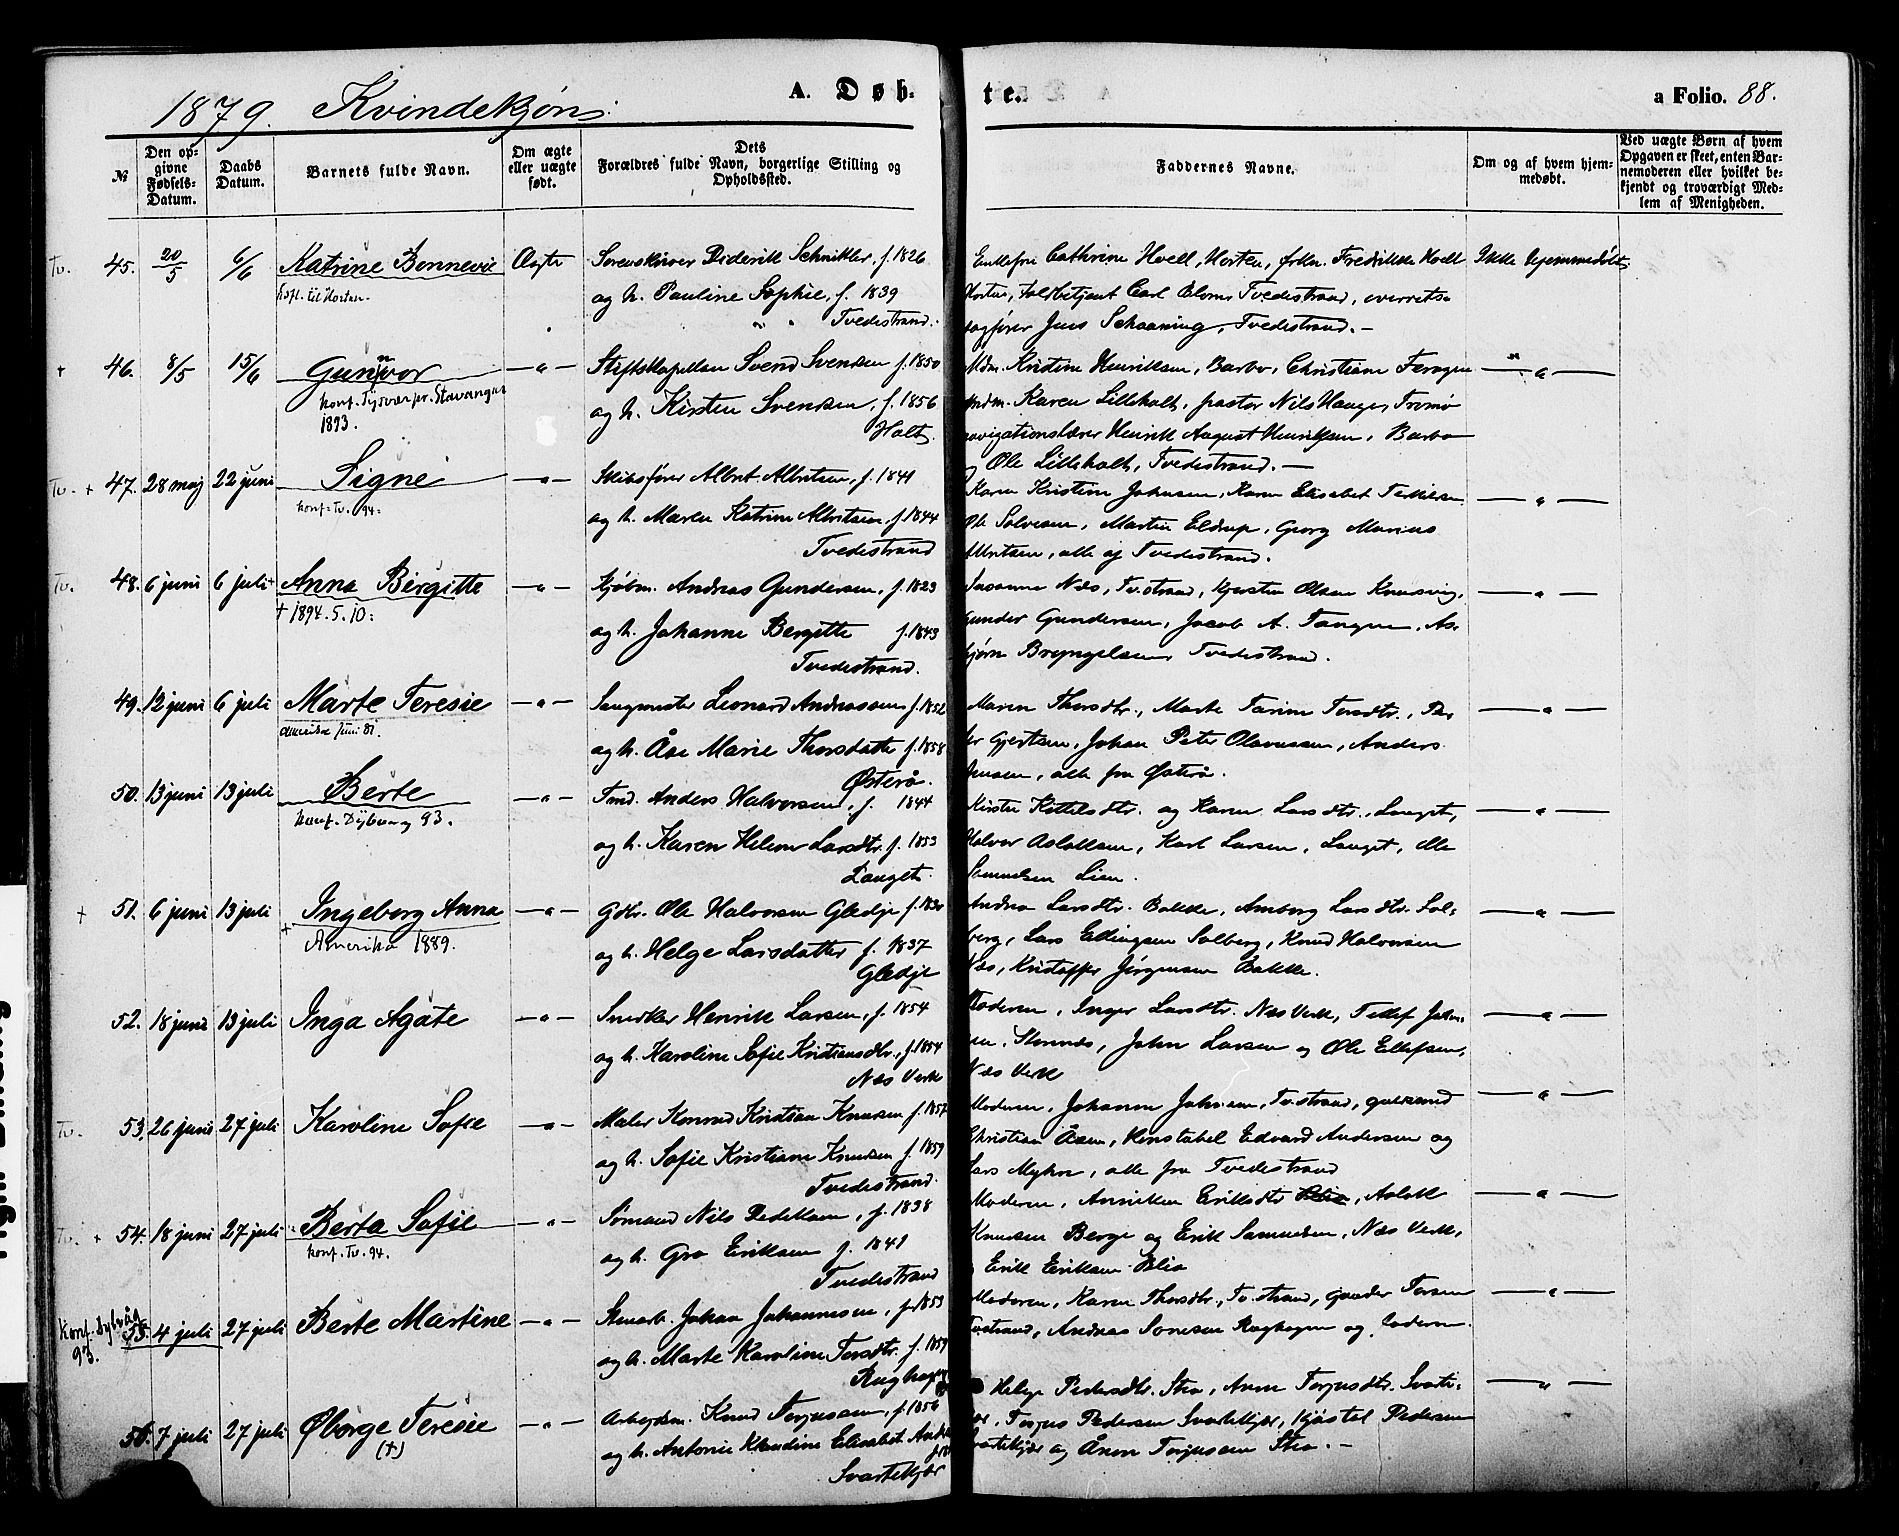 1879. Kvindekjøn.
A. Døb-
te.
a Folio. 88.
№
Den op-
givne
Fødsels-
Datum.
Daabs
Datum.
Barnets fulde Navn.
Om ægte
eller uægte
født.
Dets
Forældres fulde Navn, borgerlige Stilling og
Opholdssted.
Faddernes Navne.
Om og af hvem hjem-
medøbt.
Ved uægte Børn af hvem
Opgaven er skeet, enten Bar-
nemoderen eller hvilket be-
kjendt og troværdigt Med-
lem af Menigheden.
Tv. 45. 20/5 6/6 Katrine Bonnevie Ægte
til Horten
Sorenskriver Diderik Schnitler, f. 1826
og h. Pauline Sophie, f. 1839
Tvedestrand.
Enkefru Cathrine Hvell, Horten, frkn. Fredrikke Hvell
Horten, Toldbetjent Carl Blom, Tvedestrand, overrets-
sagfører Jens Schaaning, Tvedestrand. –
Ikke hjemmedøbt
+ 46. 8/5 15/6 Gunnvor –"–
konf. Tysvær pr. Stavanger
1893.
Stiftskapellan Svend Svendsen f. 1850
og h. Kirsten Svendsen, f. 1856
Holt.
Mdm. Kristine Henriksen, Barbo, Christiane
mdm. Karen Lilleholt, pastor Nils Hauge, Tromø
navigationslærer Henrik August Henriksen, Barbo
og Ole Lilleholt, Tvedestrand. –
–"–
Tv. + 47. 28 maj 22 juni Signe –"–
konf. Tv. 94.
Skibsfører Albret Albretsen, f. 1841
og h. Maren Katrine Albretsen, f. 1844
Tvedestrand
Karen Kristine Johnsen, Karen Elisabet Terkilsen
Ole Solvesen, Martin Eldrup, Georg Marius
Albretsen, alle af Tvedestrand.
–"–
Tv. 48. 6 juni 6 juli + Anna Birgitte –"–
† 1894. 5. 10.
Kjøbm. Andreas Gundersen, f. 1823
og h. Johanne Bergitte f. 1843
Tvedestrand.
Susanne Næs, Tv.strand, Kjersten Olsen
Gunder Gundersen, Jacob A. Tangen, As-
bjørn Bryngelsen, Tvedestrand.
–"–
49. 12 juni 6 juli Marte Teresie –"–
Amerika juni 81.
Saugmester Leonard Andreassen f. 1852
og h. Åse Marie Thorsdatter f. 1858
Østerå.
Maren Thorsdtr., Marte Tarine Torsdtr., Pe-
ter Gjertsen, Johan Peter Olavessen, Anders
Jensen, alle fra Østerå.
–"–
50. 13 juni 13 juli Berte –"–
konf. Dybvaag 93.
Tmd. Anders Halvorsen, f. 1844
og h. Karen Helene Larsdtr. f. 1853
Langet.
Kirsten Kittelsdtr. og Karen Larsdtr., Langet,
Halvor Aslaksen, Karl Larsen, Langet, Ole
Samuelsen Lien.
–"–
+ 51. 6 juni 13 juli Ingeborg Anna –"–
+ Amerika 1889.
Gbr. Ole Halvorsen Gledje
og h. Helge Larsdatter f. 1837
Gledje
Andrea Larsdtr. Bakke, Amborg Larsdtr. Sol-
berg, Lars Ellingsen Solberg, Knud Halvorsen
Næs, Kristoffer Jørgensen Bakke.
–"–
52. 18 juni 13 juli Inga Agate –"–
Smerker Henrik Larsen, f. 1854
og h. Karoline Sofie Kristiansdtr., f. 1854
Næs Verk
Moderen, Inger Larsdtr. Næs Verk, Tellef John-
sen, John Larsen og Ole Ellefsen,
Næs Verk
–"–
Tv. 53. 26 juni 27 juli Karoline Sofie –"–
Maler Konrad Kristian Knudsen f. 1857
og h. Sofie Kristiane Knudsen f. 1859
Tvedestrand.
Moderen, Johanne Johnsen, Tv.strand, gulsmed
Christian Åsen, Konstabel Edvard Andersen og
Lars Myhre, alle fra Tvedestrand
–"–
Tv. + 54. 18 juni 27 juli Berta Sofie –"–
konf. Tv. 94.
Sømand Nils Pederssen, f. 1838
og h. Gro Eriksen f. 1841
Tvedestrand
Moderen, Anniken Eriksdtr., Aslak
Knudsen Berge og Erik Samuelsen, Næs Verk,
og Erik Eriksen Blia
–"–
Konf. Dybvåg
93. 55. 4 juli 27 juli Berte Martine –"–
Stenarb. Johan Johannesen, f. 1853
og h. Marte Karoline Torsdtr. f. 1859
Roghagen
Moderen, Karen Thorsdtr., Tv.strand, Gunder Torsen
Tvstrand, Andreas Sørensen Roghagen og Faderen
–"–
56. 7 juli 27 juli Øborge Teresie –"–
(†)
Arbejdsm. Knud Torjussen, f. 1856
og h. Antonie Klaudine Elisabet
Svartekjær
Helge Pedersdtr. Stea, Anne Torjusdtr. Svarte-
kjær, Torjus Pedersen Svartekjær, Kjøstel Pedersen
Svartekjær og Ånon Torjussen Stea. –
–"–